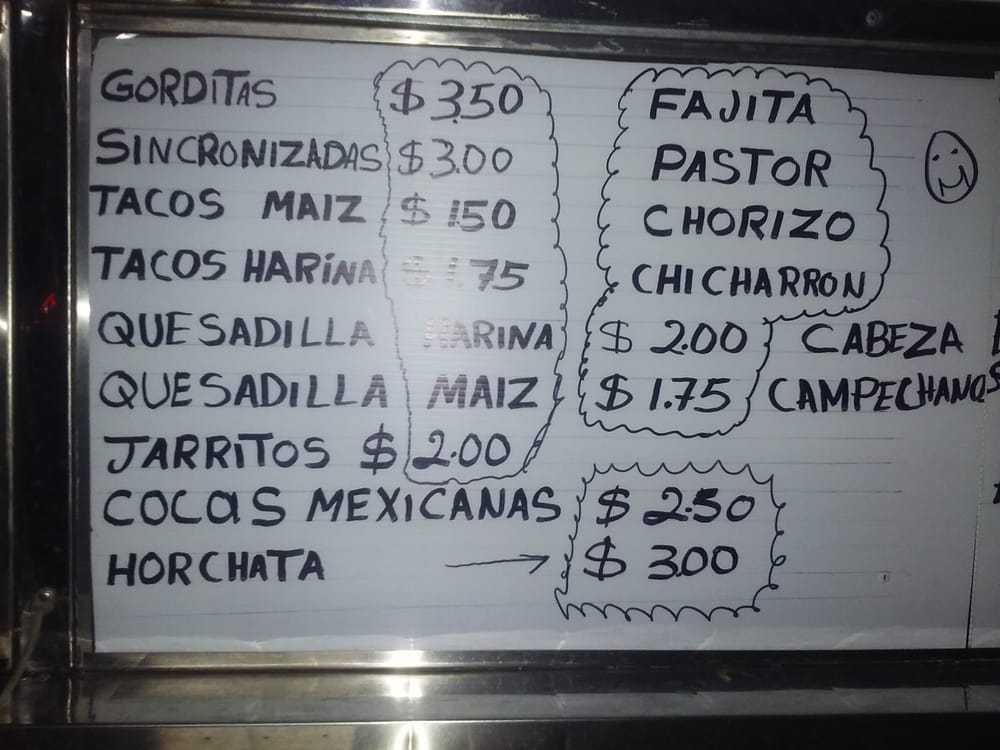 GORDITAS $3.50 FAJITA
SINCRONIZADAS $3.00 PASTOR
TACOS MAIZ $1.50 CHORIZO
TACOS HARINA $1.75 CHICHARRON
QUESADILLA HARINA $2.00 CABEZA
QUESADILLA MAIZ $1.75 CAMPECHANOS
JARRITOS $2.00
COCAS MEXICANAS $2.50
HORCHATA → $3.00